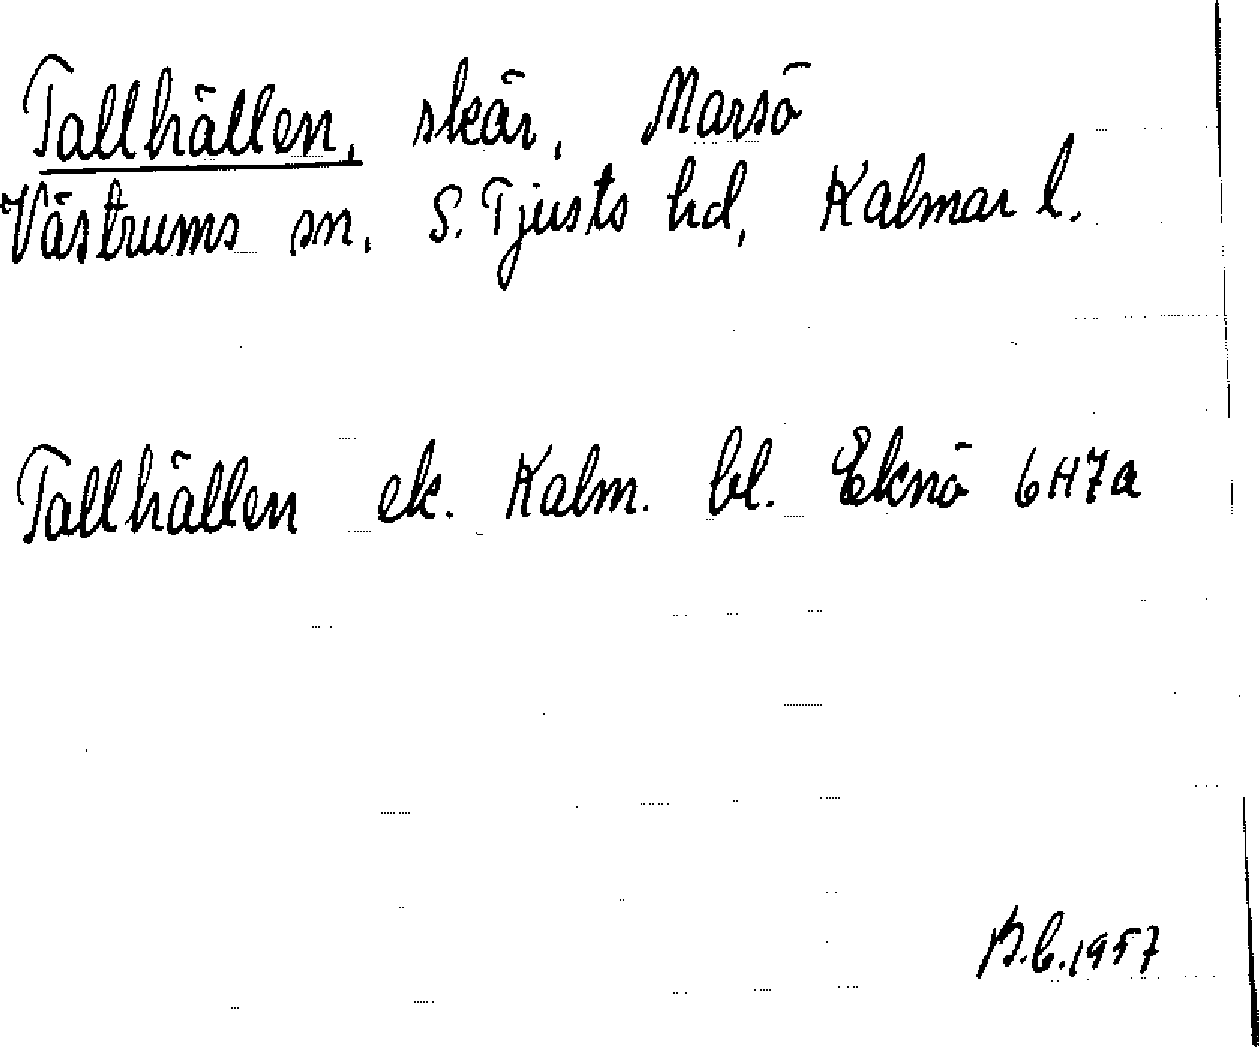 Tallhällen, skär, Marsö
Västrums sn. S. Tjusts hd, Kalmar l.
Tallhällen ek. Kalm. bl. Eknö 6H7a
B.b.1957